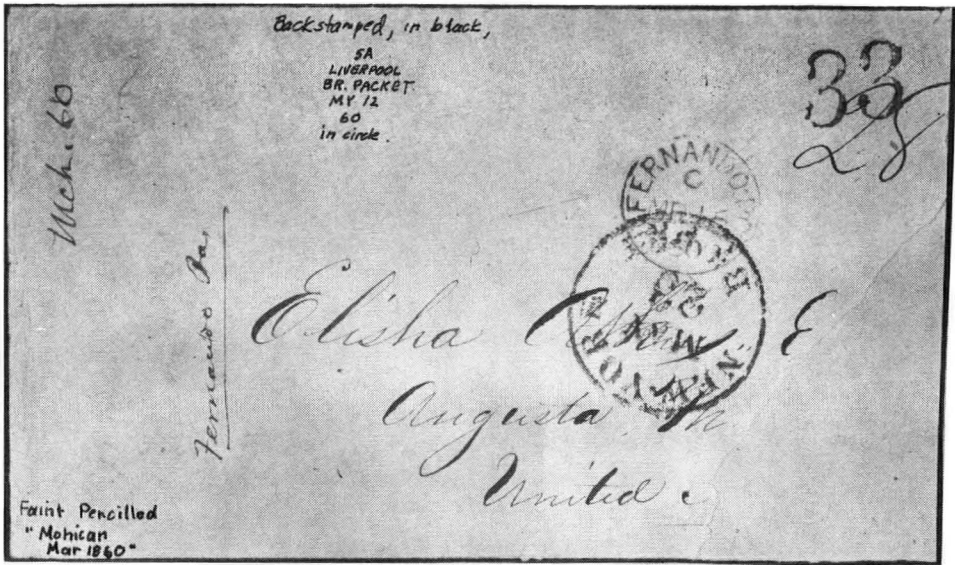 Backstamped, in black,
5A
LIVERPOOL
BR. PACKET
MY 12
60
in circle.
Mch. 60
33
28
FERNANDO
C
Fernando Po,
NEW YORK
MAY
Elisha
Augusta M
United
Faint Pencilled
"Mohican
Mar 1860"